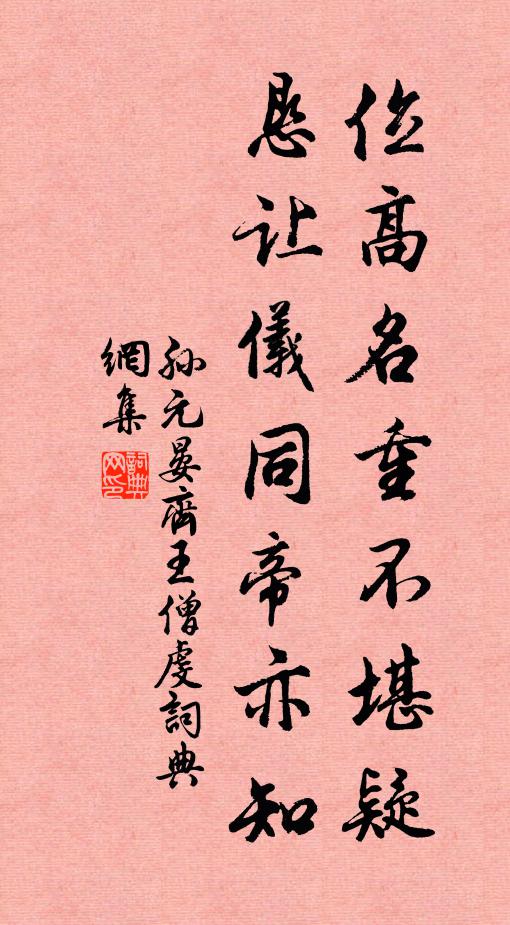 位高名重不堪疑
恳让儀同帝亦知
孙元晏齊王僧虔詞典
網集
詞典
网印